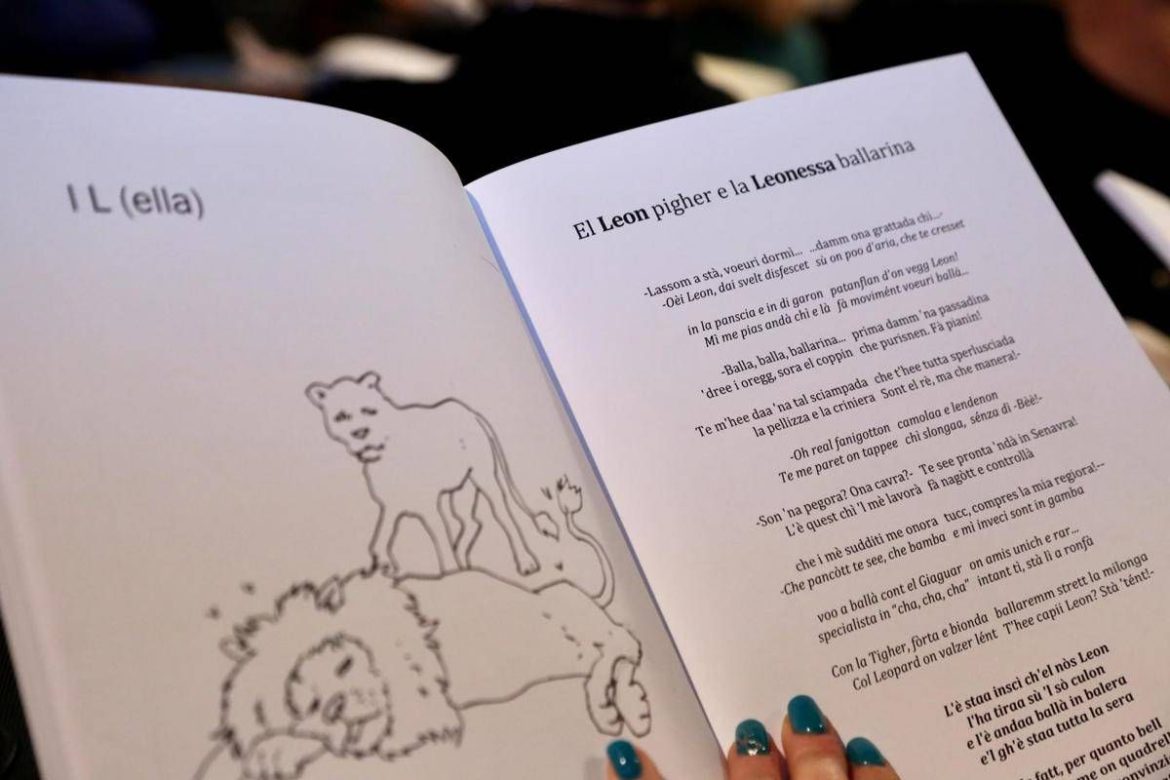 I L (ella)
El Leon pigher e la Leonessa ballarina
-Lassom a stà, voeuri dormì... ...damm ona grattada chi...-
-Oèi Leon, dai svelt disfescet sù on poo d'aria, che te cresset
in la panscia e in di garon patanflan d'on vegg Leon!
Mì me pias andà chi e là fà movimént voeuri ballà...
-Balla, balla, ballarina... prima damm 'na passadina
'dree i oregg, sora el coppin che purisnen. Fà pianin!
Te m'hee daa 'na tal sciampada che t'hee tutta sperlusciada
la pellizza e la criniera Sont el rè, ma che manera!-
-Oh real fanigotton camolaa e lendenon
Te me paret on tappee chì slongaa, sénza dì -Bèè!-
-Son 'na pegora? Ona cavra?- Te see pronta 'ndà in Senavra!
L'è quest chì 'l mè lavorà fà nagòtt e controllà
che i mè sudditi me onora tucc, compres la mia regiora!--
-Che pancòtt te see, che bamba e mi inveci sont in gamba
voo a ballà cont el Giaguar on amis unich e rar...
specialista in "cha, cha, cha" intant ti, stà lì a ronfà
Con la Tigher, fòrta e bionda ballaremm strett la milonga
Col Leopard on valzer lént T'hee capii Leon? Stà 'tént!-
L'è staa inscì ch'el nòs Leon
l'ha tiraa sù 'l sò culon
e l'è andaa ballà in balera
e'l gh'è staa tutta la sera
fatt, per quanto bell
on quadrell